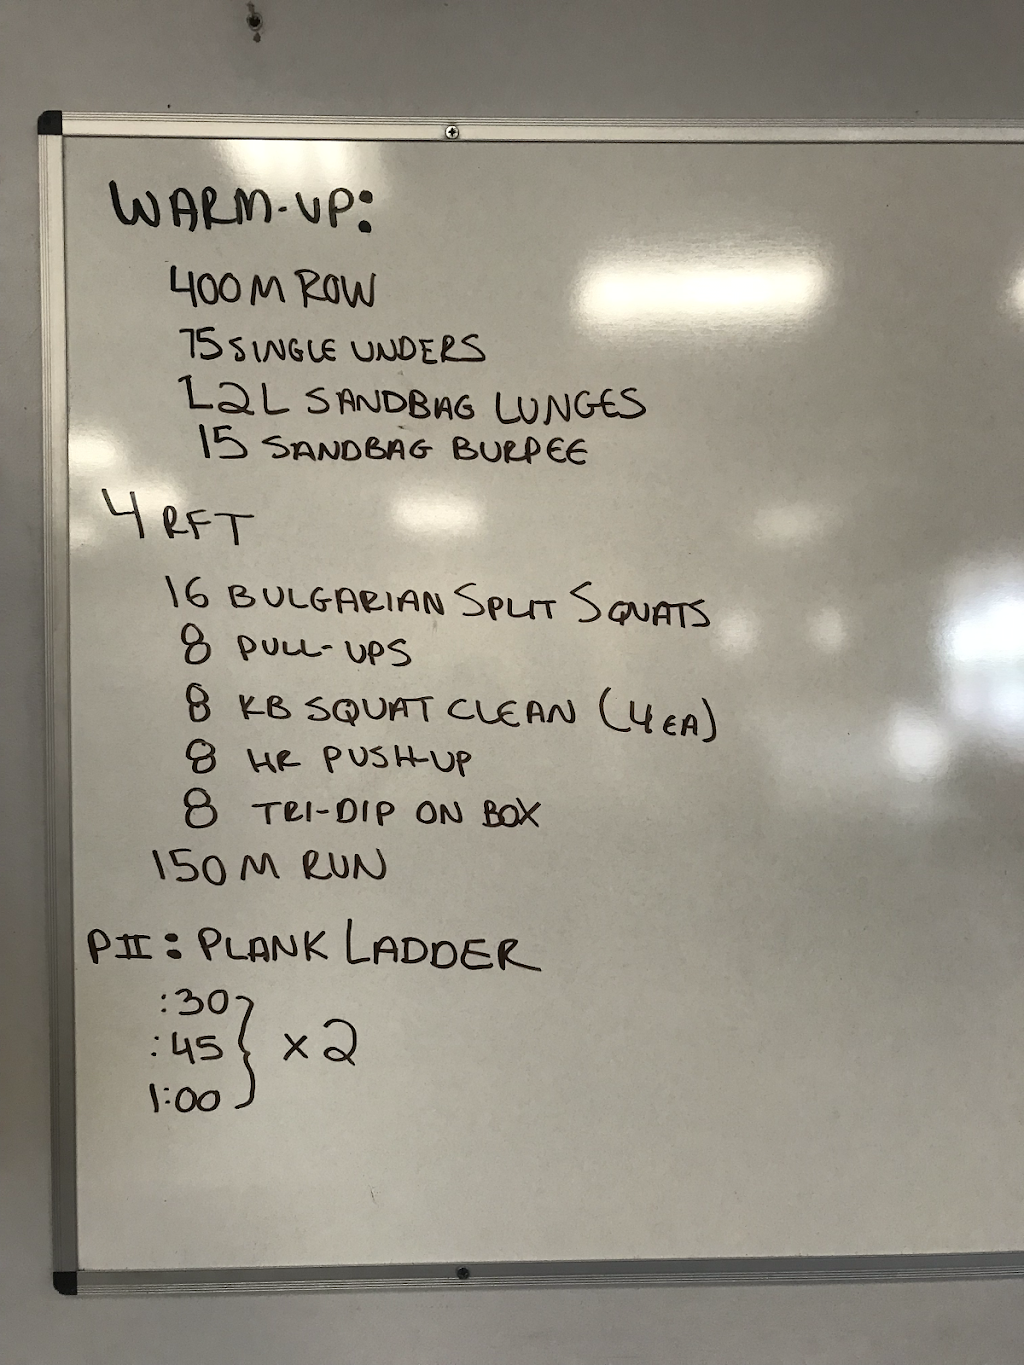 WARM-UP:
400M ROW
75 SINGLE UNDERS
L2L SANDBAG LUNGES
15 SANDBAG BURPEE
4 RFT
16 BULGARIAN SPLIT SQUATS
8 PULL-UPS
8 KB SQUAT CLEAN (4 EA)
8 HR PUSH-UP
8 TRI-DIP ON BOX
150 M RUN
PII: PLANK LADDER
:30
:45 } x2
1:00